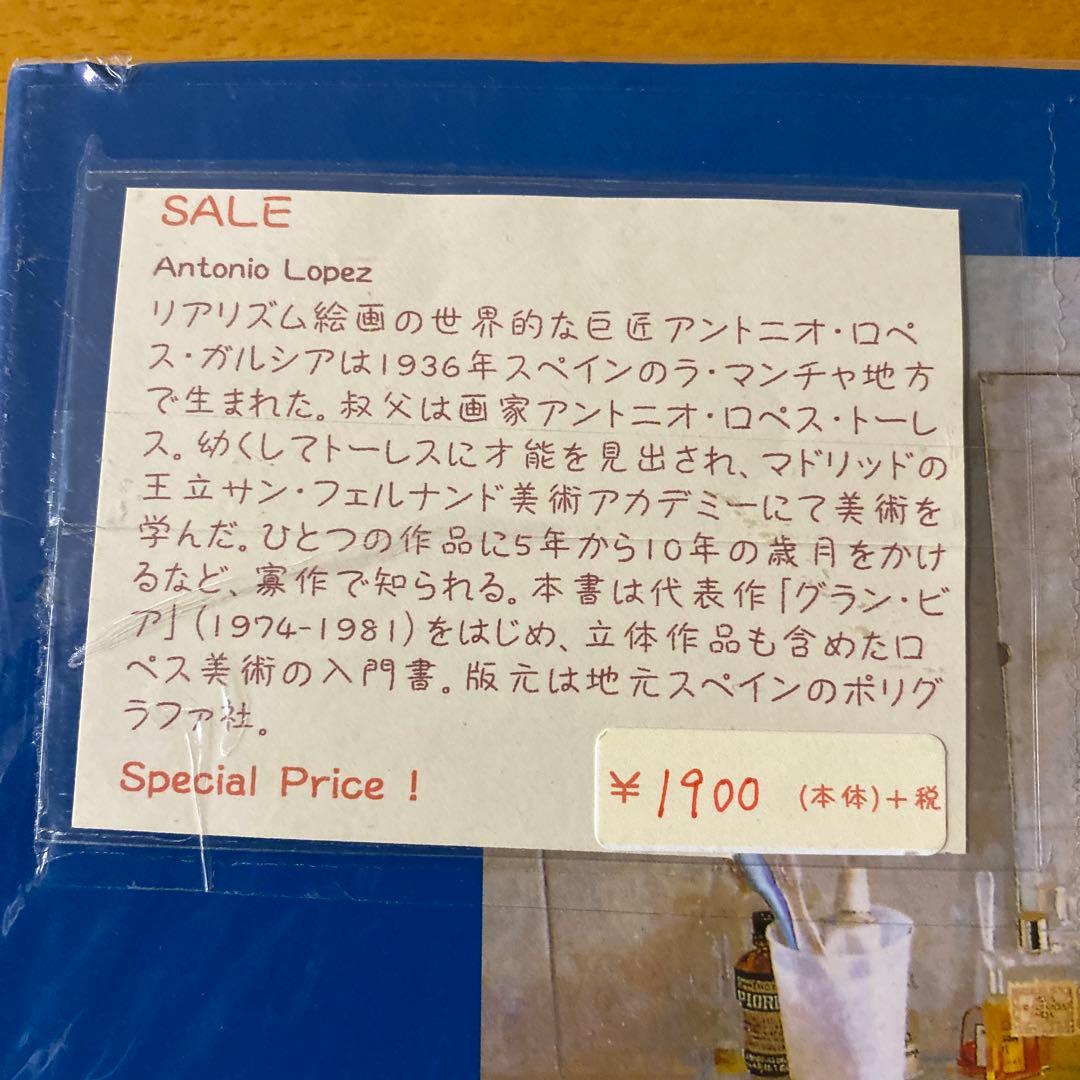 SALE
Antonio Lopez
リアリズム絵画の世界的な巨匠アントニオ・ロペ
ス・ガルシアは1936年スペインのラ・マンチャ地方
で生まれた。叔父は画家アントニオ・ロペス・トーレ
ス。幼くしてトーレスにオ能を見出され、マドリッドの
王立サン・フェルナンド美術アカデミーにて美術を
学んだ。ひとつの作品に5年から10年の歳月をかけ
るなど、寡作で知られる。本書は代表作「グラン・ビ
ア」(1974-1981)をはじめ、立体作品も含めたロ
ペス美術の入門書。版元は地元スペインのポリグ
ラファ社。
Special Price !
¥1900 (本体)+税